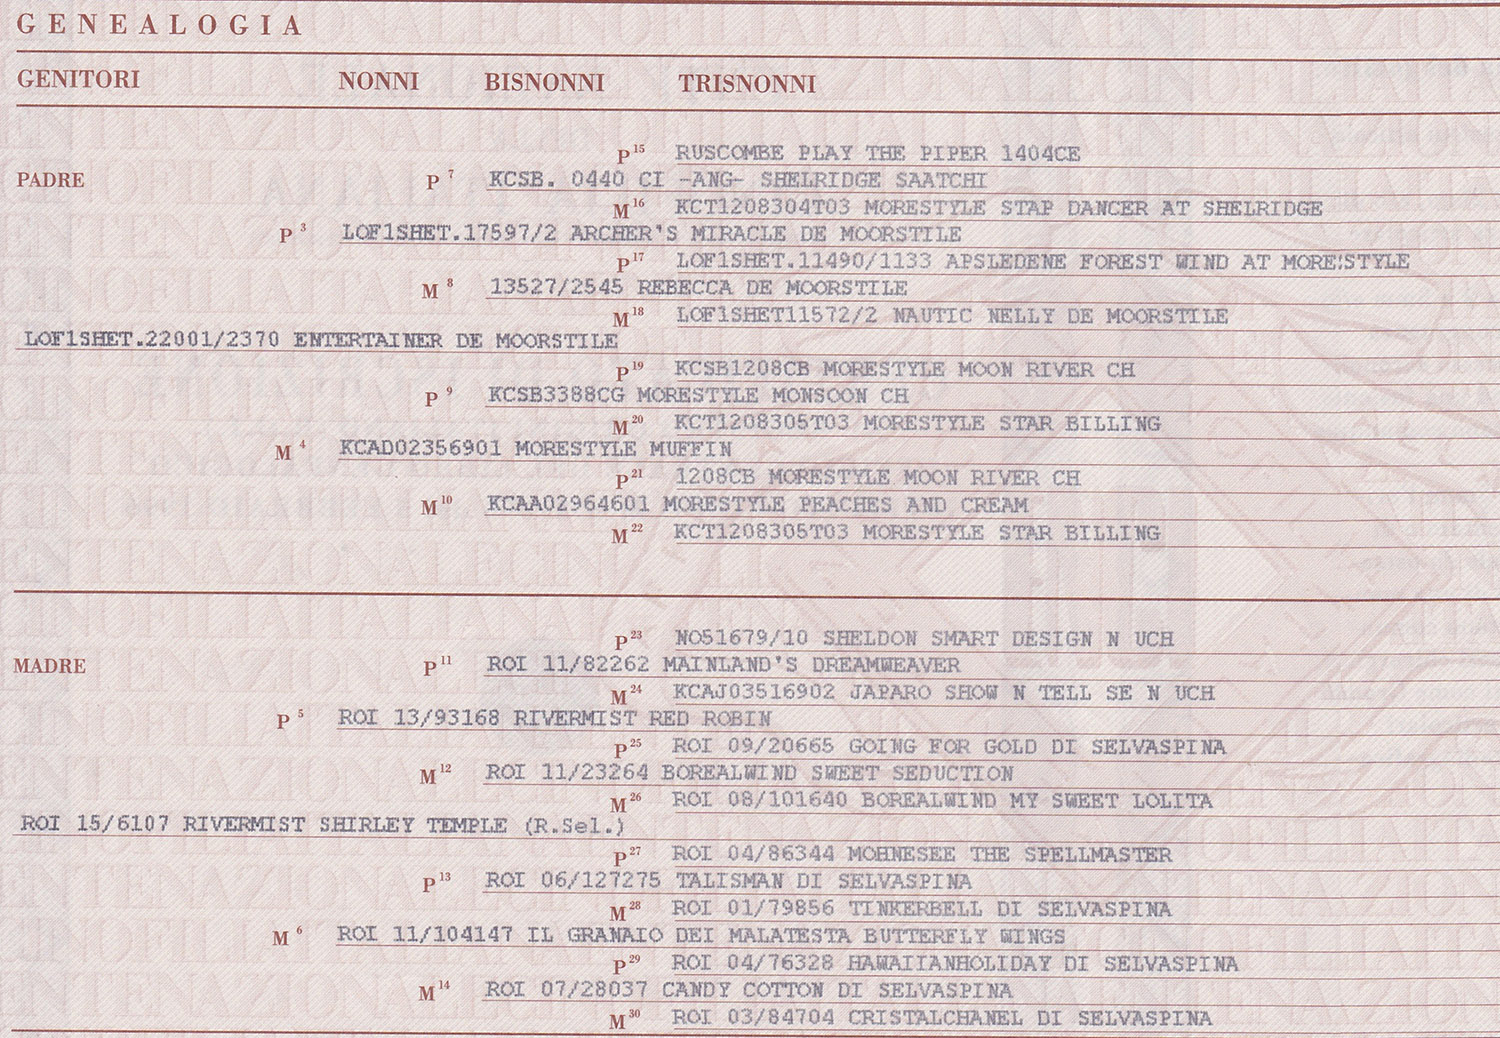 GENEALOGIA
GENITORI NONNI BISNONNI TRISNONNI
P 15 RUSCOMBE PLAY THE PIPER 1404CE
PADRE P 7 KCSB. 0440 CI -ANG- SHELRIDGE SAATCHI
M 16 KCT1208304T03 MORESTYLE STAP DANCER AT SHELRIDGE
P 3 LOF1SHET.17597/2 ARCHER'S MIRACLE DE MOORSTILE
P 17 LOF1SHET.11490/1133 APSLEDENE FOREST WIND AT MORE:STYLE
M 8 13527/2545 REBECCA DE MOORSTILE
M 18 LOF1SHET11572/2 NAUTIC NELLY DE MOORSTILE
LOF1SHET.22001/2370 ENTERTAINER DE MOORSTILE
P 19 KCSB1208CB MORESTYLE MOON RIVER CH
P 9 KCSB3388CG MORESTYLE MONSOON CH
M 20 KCT1208305T03 MORESTYLE STAR BILLING
M 4 KCAD02356901 MORESTYLE MUFFIN
P 21 1208CB MORESTYLE MOON RIVER CH
M 10 KCAA02964601 MORESTYLE PEACHES AND CREAM
M 22 KCT1208305T03 MORESTYLE STAR BILLING
P 23 NO51679/10 SHELDON SMART DESIGN N UCH
MADRE P 11 ROI 11/82262 MAINLAND'S DREAMWEAVER
M 24 KCAJ03516902 JAPARO SHOW N TELL SE N UCH
P 5 ROI 13/93168 RIVERMIST RED ROBIN
P 25 ROI 09/20665 GOING FOR GOLD DI SELVASPINA
M 12 ROI 11/23264 BOREALWIND SWEET SEDUCTION
M 26 ROI 08/101640 BOREALWIND MY SWEET LOLITA
ROI 15/6107 RIVERMIST SHIRLEY TEMPLE (R.Sel.)
P 27 ROI 04/86344 MOHNESEE THE SPELLMASTER
P 13 ROI 06/127275 TALISMAN DI SELVASPINA
M 28 ROI 01/79856 TINKERBELL DI SELVASPINA
M 6 ROI 11/104147 IL GRANAIO DEI MALATESTA BUTTERFLY WINGS
P 29 ROI 04/76328 HAWAIIANHOLIDAY DI SELVASPINA
M 14 ROI 07/28037 CANDY COTTON DI SELVASPINA
M 30 ROI 03/84704 CRISTALCHANEL DI SELVASPINA